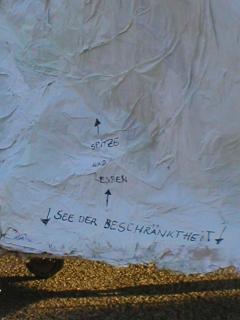 SPITZE
UND
EBBEN
SEE DER BESCHRÄNKTHEIT